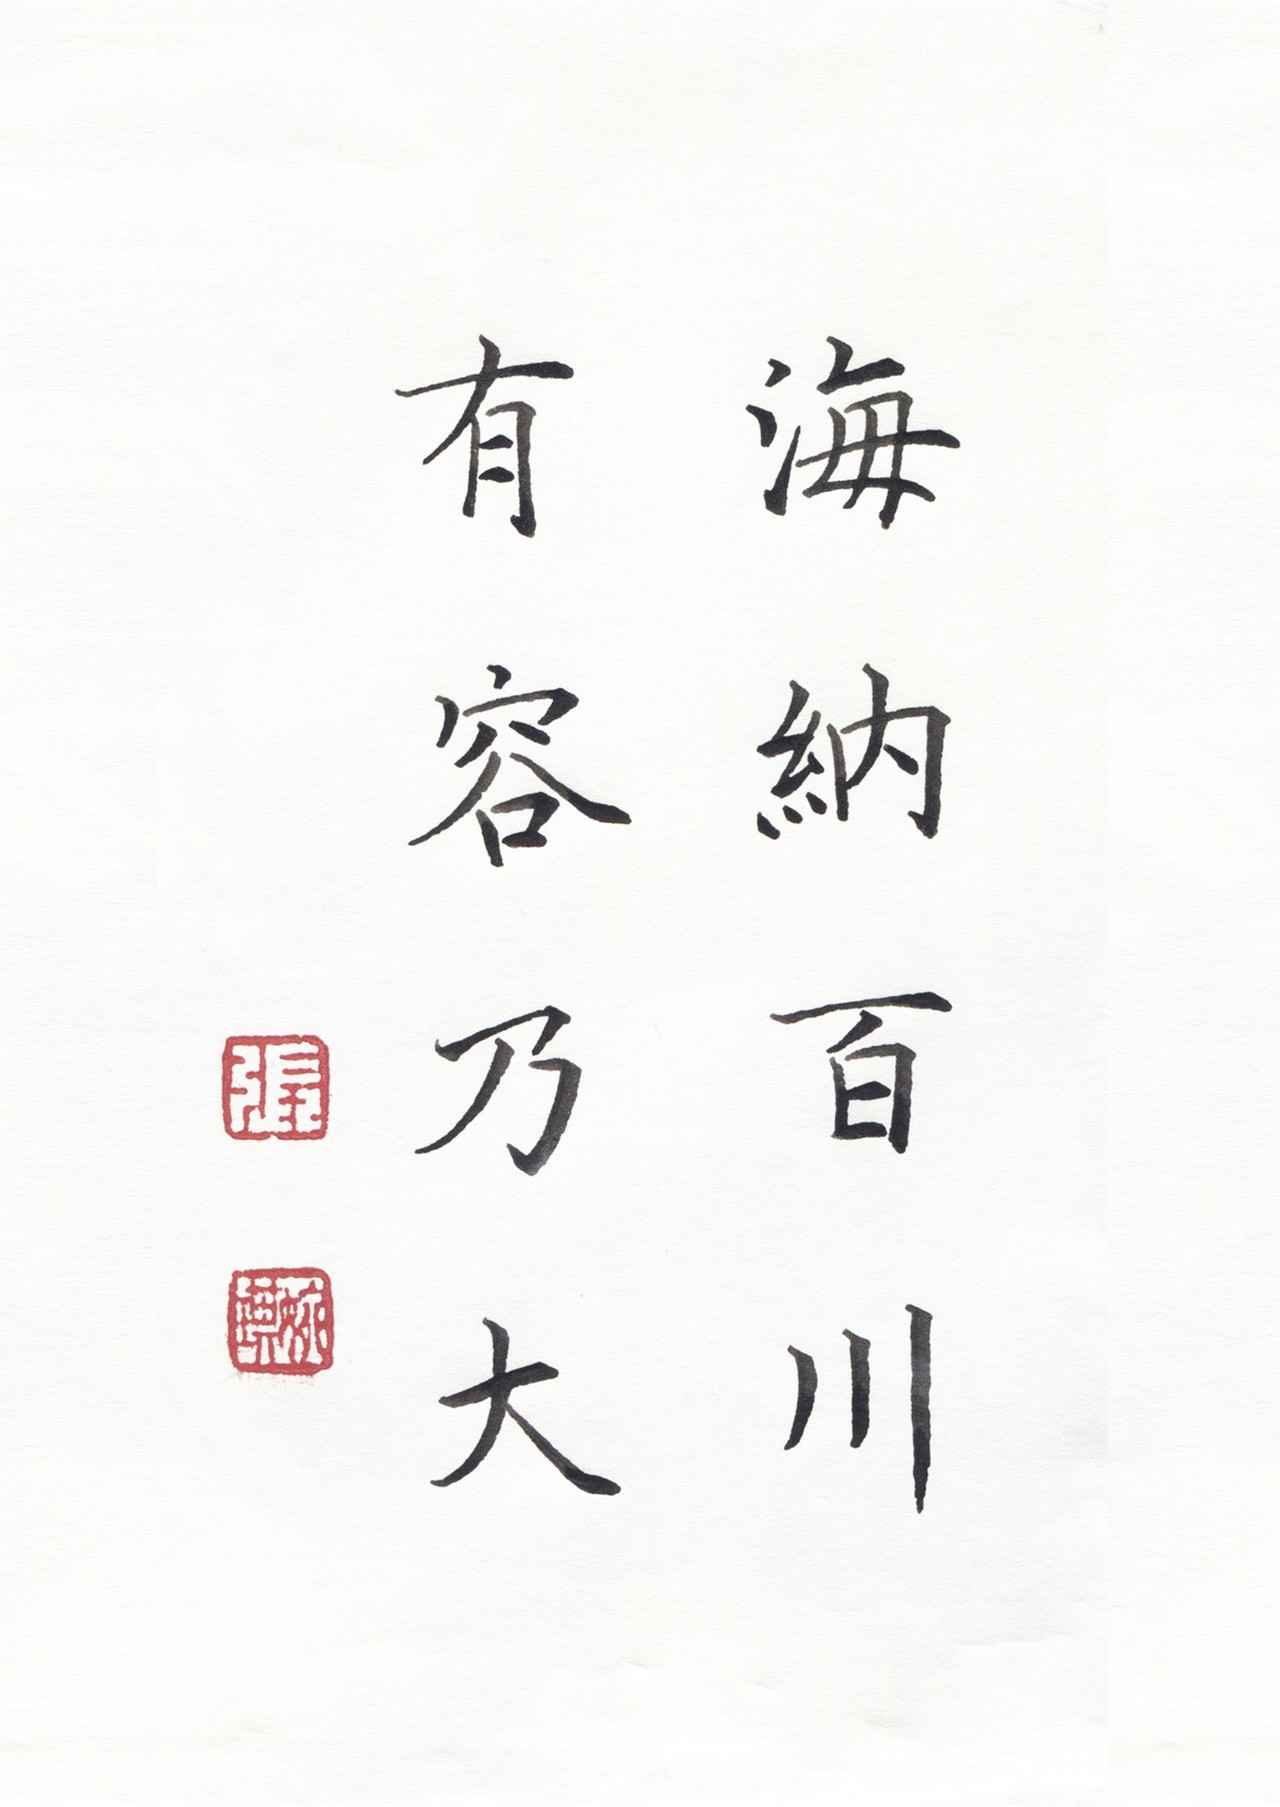 海納百川
有容乃大
張